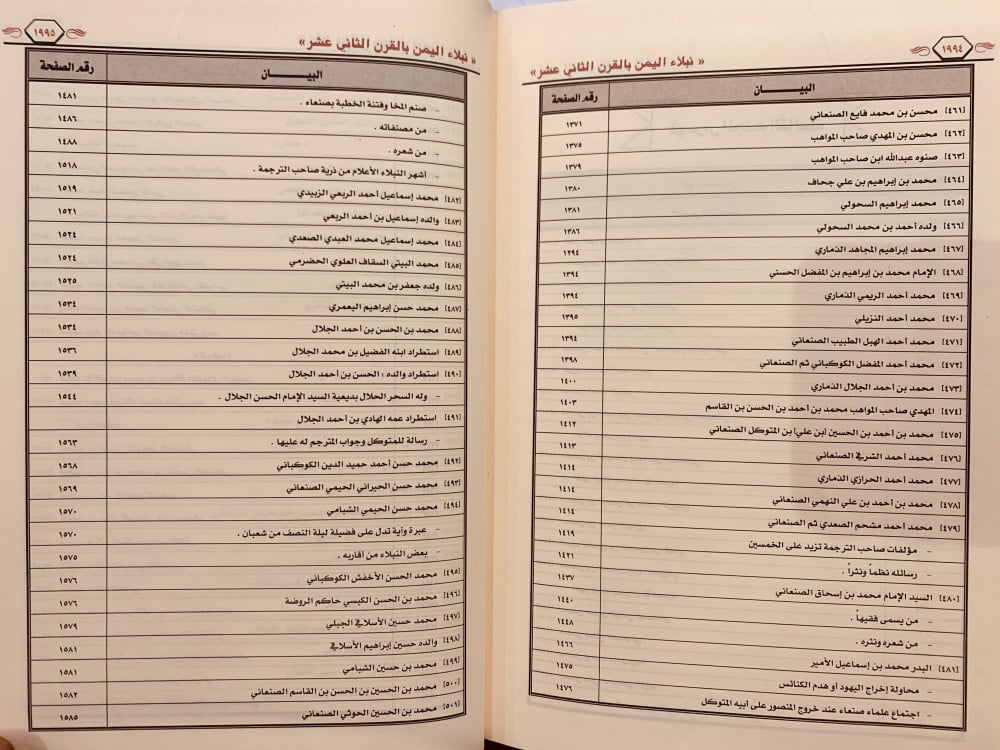 ١٩٩٤
« نبلاء اليمن بالقرن الثاني عشر»
البيـــــــان رقم الصفحة
[٤٦١] محسن بن محمد فايع الصنعاني ١٣٧١
[٤٦٢] محسن بن المهدي صاحب المواهب ١٣٧٥
[٤٦٣] صنوه عبدالله ابن صاحب المواهب ١٣٧٩
[٤٦٤] محمد بن إبراهيم بن علي جحاف ١٣٨٠
[٤٦٥] محمد إبراهيم السحولي ١٣٨١
[٤٦٦] ولده أحمد بن محمد السحولي ١٣٨٦
[٤٦٧] محمد إبراهيم المجاهد الذماري ١٢٩٤
[٤٦٨] الإمام محمد بن إبراهيم بن المفضل الحسني ١٣٩٤
[٤٦٩] محمد أحمد الريمي الذماري ١٣٩٤
[٤٧٠] محمد أحمد النزيلي ١٣٩٥
[٤٧١] محمد أحمد الهبل الطبيب الصنعاني ١٣٩٤
[٤٧٢] محمد أحمد المفضل الكوكباني ثم الصنعاني ١٣٩٨
[٤٧٣] محمد بن أحمد الجلال الذماري ١٤٠٠
[٤٧٤] المهدي صاحب المواهب محمد بن أحمد بن الحسن بن القاسم ١٤٠٣
[٤٧٥] محمد بن أحمد بن الحسين (بن علي) بن المتوكل الصنعاني ١٤١٢
[٤٧٦] محمد أحمد الشرفي الصنعاني ١٤١٣
[٤٧٧] محمد أحمد الحرازي الذماري ١٤١٤
[٤٧٨] محمد بن أحمد بن علي النهمي الصنعاني ١٤١٤
[٤٧٩] محمد أحمد مشحم الصعدي ثم الصنعاني ١٤١٤
- مؤلفات صاحب الترجمة تزيد على الخمسين ١٤١٩
- رسائله نظماً ونثراً . ١٤٢١
[٤٨٠] السيد الإمام محمد بن إسحاق الصنعاني ١٤٣٧
- من يسمى فقيهاً . ١٤٤٠
- من شعره ونثره . ١٤٤٨
[٤٨١] البدر محمد بن إسماعيل الأمير ١٤٦٦
- محاولة إخراج اليهود أو هدم الكنائس ١٤٧٥
- اجتماع علماء صنعاء عند خروج المنصور على أبيه المتوكل ١٤٧٦
١٩٩٥
« نبلاء اليمن بالقرن الثاني عشر»
البيـــــــان رقم الصفحة
- صنم المخا وفتنة الخطبة بصنعاء . ١٤٨١
- من مصنفاته . ١٤٨٦
- من شعره . ١٤٨٨
- أشهر النبلاء الأعلام من ذرية صاحب الترجمة . ١٥١٨
[٤٨٢] محمد إسماعيل أحمد الربعي الزبيدي ١٥١٩
[٤٨٣] والده إسماعيل بن أحمد الربعي ١٥٢١
[٤٨٤] محمد إسماعيل محمد العبدي الصعدي ١٥٢٤
[٤٨٥] محمد البيتي السقاف العلوي الحضرمي ١٥٢٤
[٤٨٦] ولده جعفر بن محمد البيتي ١٥٢٥
[٤٨٧] محمد حسن إبراهيم اليعمري ١٥٣٤
[٤٨٨] محمد بن الحسن بن أحمد الجلال ١٥٣٤
[٤٨٩] استطراد ابنه الفضيل بن محمد الجلال ١٥٣٦
[٤٩٠] استطراد والده : الحسن بن أحمد الجلال ١٥٣٩
- وله السحر الحلال بديعية السيد الإمام الحسن الجلال . ١٥٤٤
[٤٩١] استطراد عمه الهادي بن أحمد الجلال
- رسالة للمتوكل وجواب المترجم له عليها . ١٥٦٣
[٤٩٢] محمد حسن أحمد حميد الدين الكوكباني ١٥٦٨
[٤٩٣] محمد حسن الحيراني الحيمي الصنعاني ١٥٦٩
[٤٩٤] محمد حسن الحيمي الشبامي ١٥٧٠
- عبرة وآية تدل على فضيلة ليلة النصف من شعبان . ١٥٧٠
- بعض النبلاء من أقاربه . ١٥٧٥
[٤٩٥] محمد الحسن الأخفش الكوكباني ١٥٧٦
[٤٩٦] محمد بن الحسن الكبسي حاكم الروضة ١٥٧٦
[٤٩٧] محمد حسين الأسلافي الجبلي ١٥٧٩
[٤٩٨] والده حسين إبراهيم الأسلافي ١٥٨١
[٤٩٩] محمد بن حسين الشبامي ١٥٨١
[٥٠٠] محمد بن الحسين بن الحسن بن القاسم الصنعاني ١٥٨٢
[٥٠١] محمد بن الحسين الحوثي الصنعاني ١٥٨٥